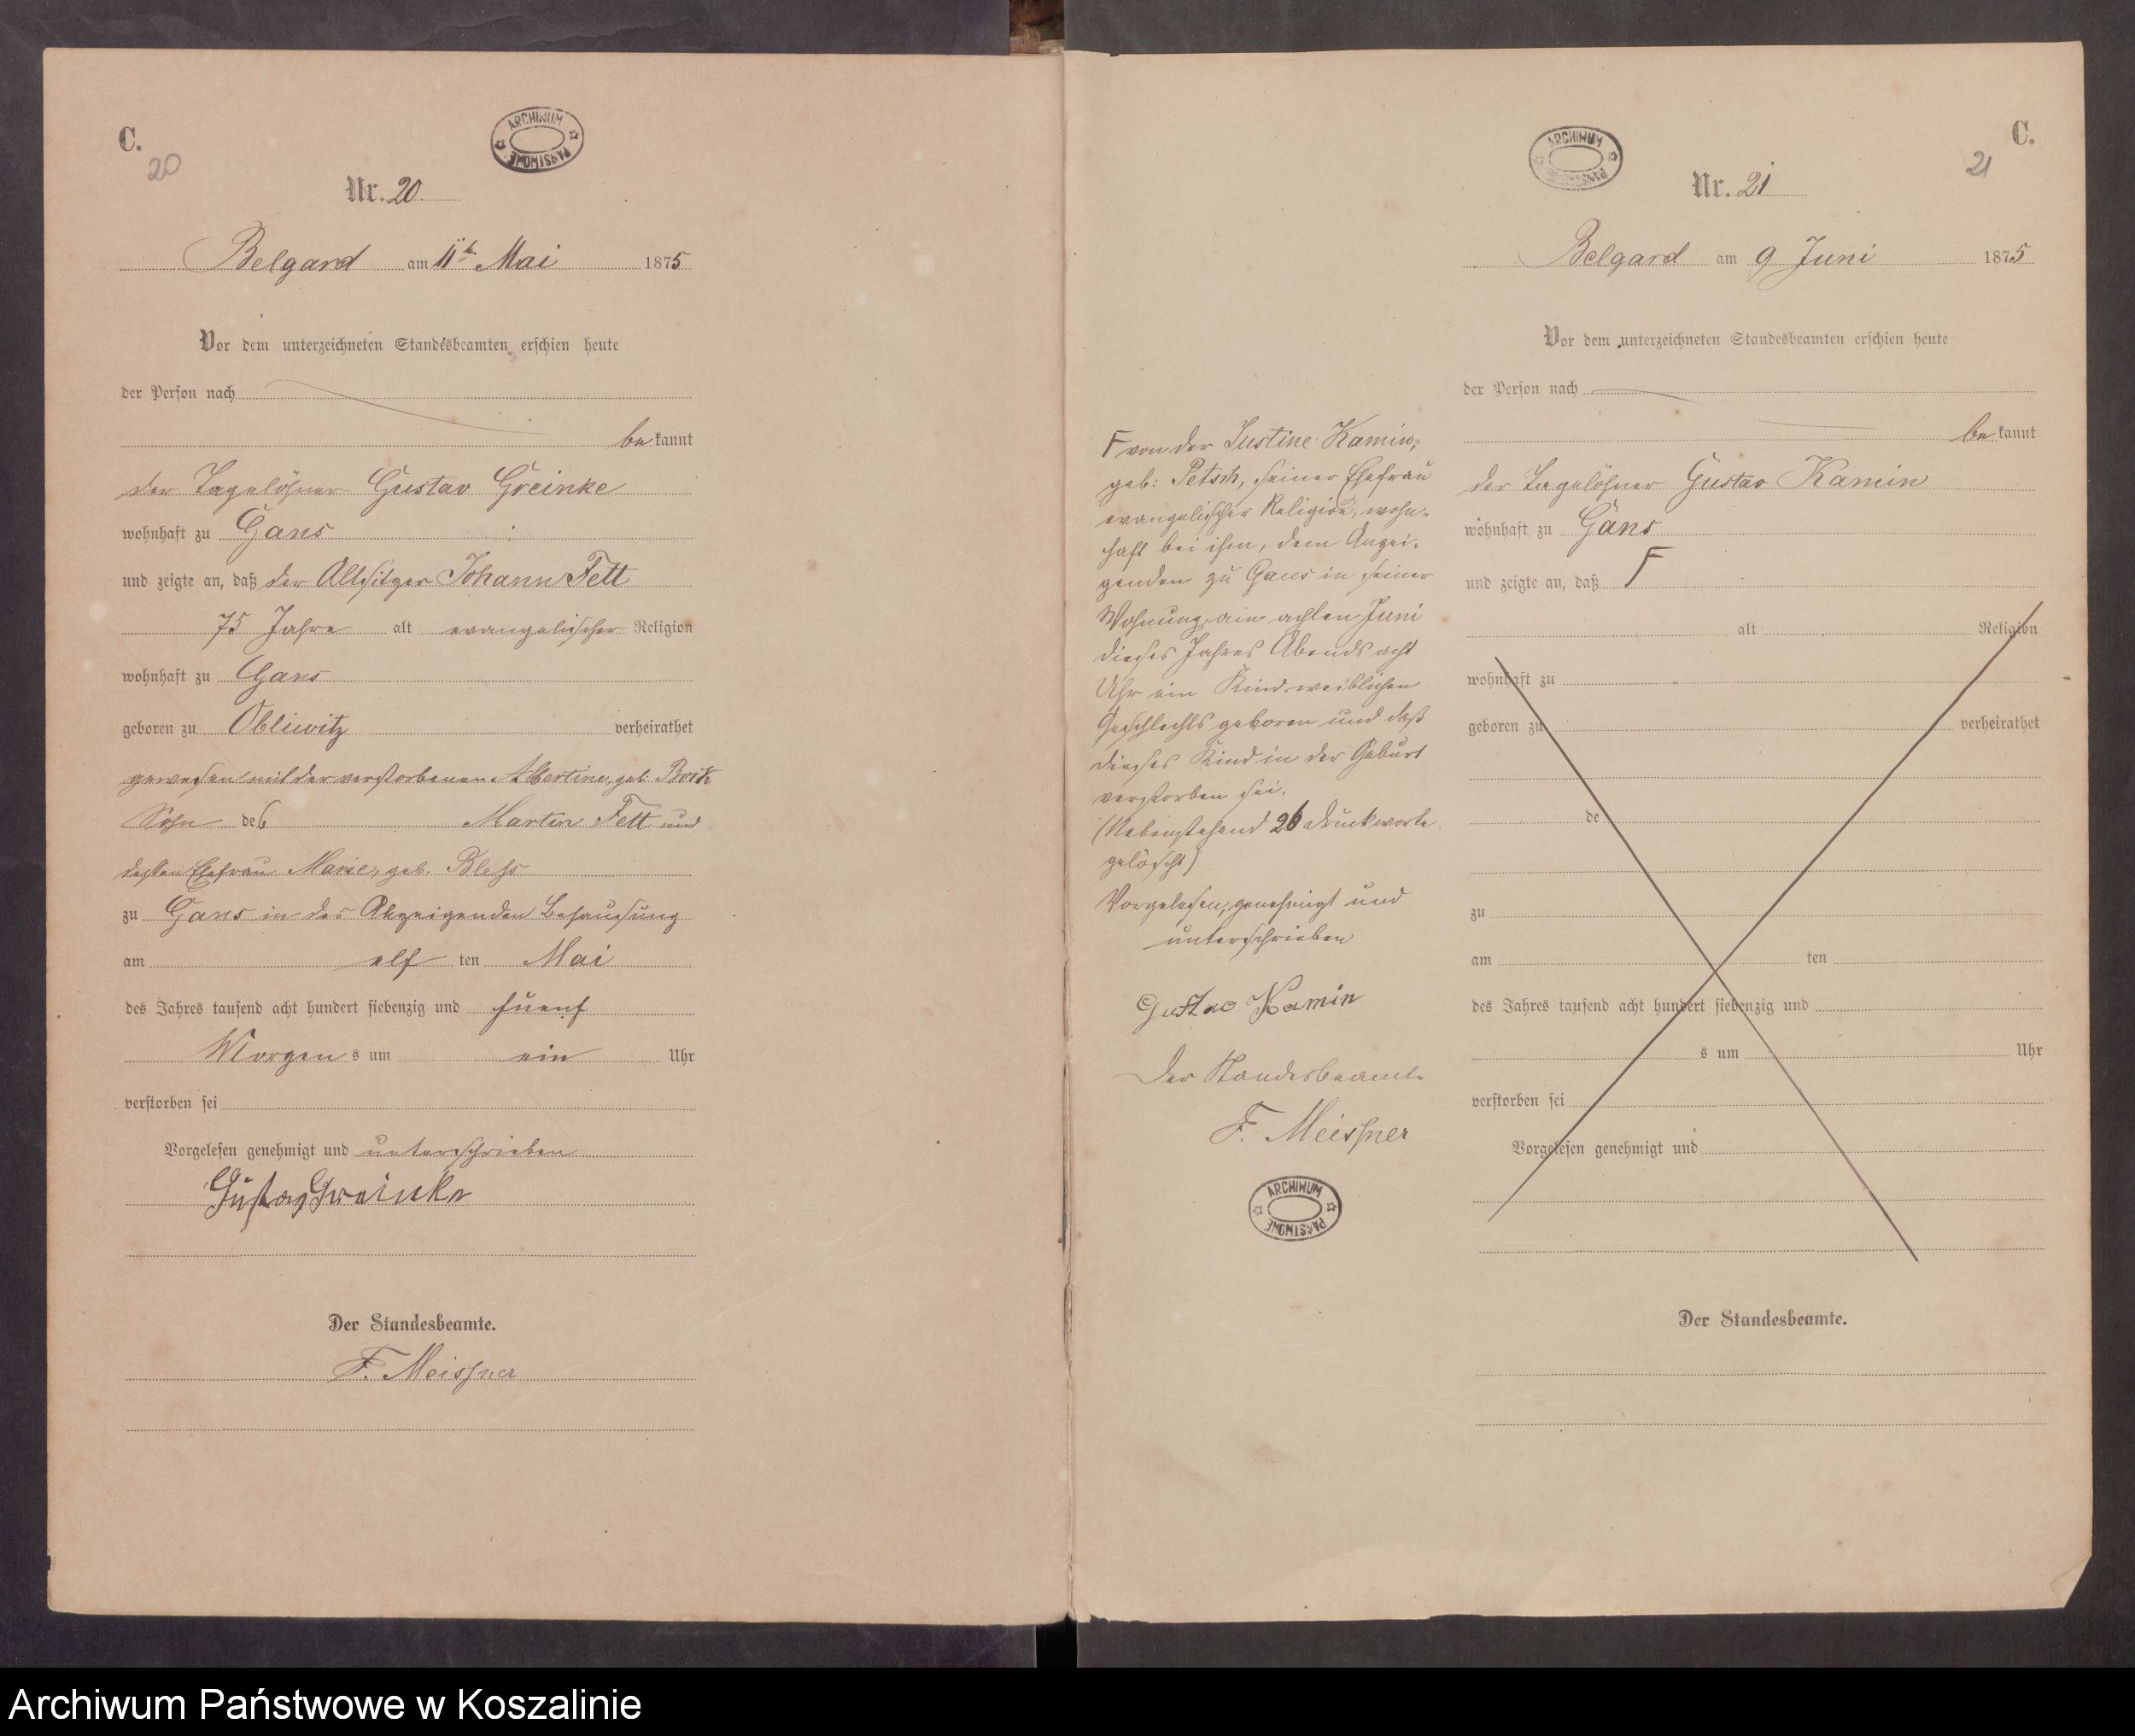 C.
20
ARCHIWUM PAŃSTWOWE
Nr. 20.
Belgard am 11t Mai 1875
Vor dem unterzeichneten Standesbeamten erschien heute
der Person nach
bekannt
der Tagelöhner Gustav Greinke
wohnhaft zu Gans
und zeigte an, daß der Altsitzer Johann Fett
75 Jahre alt evangelischer Religion
wohnhaft zu Gans
geboren zu Obliwitz verheirathet
gewesen mit der verstorbenen Albertine, geb. Bock
Sohn des Martin Fett und
dessen Ehefrau Marie, geb. Bless
zu Gans in des Anzeigenden Behausung
am elf ten Mai
des Jahres tausend acht hundert siebenzig und fuenf
Morgens um ein Uhr
verstorben sei
Vorgelesen genehmigt und unterschrieben
Gustav Greinke
Der Standesbeamte.
F. Meissner
C.
21
ARCHIWUM PAŃSTWOWE
Nr. 21
Belgard am 9 Juni 1875
Vor dem unterzeichneten Standesbeamten erschien heute
der Person nach
bekannt
der Tagelöhner Gustav Kamin
wohnhaft zu Gans
und zeigte an, daß F
alt Religion
wohnhaft zu
geboren zu verheirathet
de
zu
am ten
des Jahres tausend acht hundert siebenzig und
s um Uhr
verstorben sei
Vorgelesen genehmigt und
Der Standesbeamte.
F von der Justine Kamin,
geb: Petsch, seiner Ehefrau
evangelischer Religion, wohn-
haft bei ihm, dem Anzei-
genden zu Gans in seiner
Wohnung am achten Juni
dieses Jahres Abends acht
Uhr ein Kind weiblichen
Geschlechts geboren und daß
dieses Kind in der Geburt
verstorben sei.
(Nebenstehend 26 Druckworte
gelöscht)
Vorgelesen, genehmigt und
unterschrieben
Gustav Kamin
Der Standesbeamte
F. Meissner
ARCHIWUM PAŃSTWOWE
Archiwum Państwowe w Koszalinie